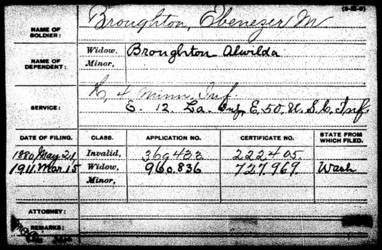 NAME OF SOLDIER: Broughton, Ebenezer M
NAME OF DEPENDENT: Widow, Broughton Alwilda
Minor,
SERVICE: K, 4 Minn Inf
E. 12. La. Inf, E, 50, U. S. C. Inf
DATE OF FILING. CLASS. APPLICATION NO. CERTIFICATE NO. STATE FROM WHICH FILED.
1880, May 21, Invalid, 369433 222405.
1911, Mar 15 Widow, 960.836 727.969. Wash
Minor,
ATTORNEY:
REMARKS: